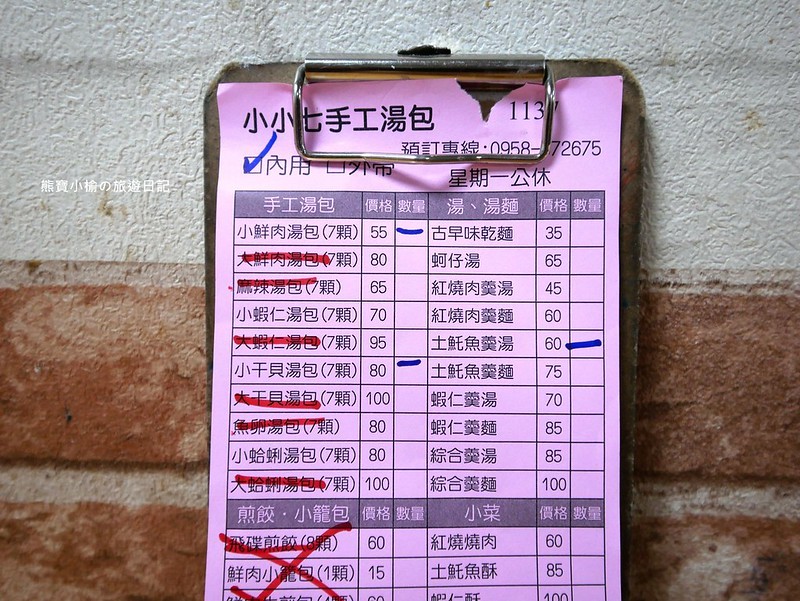 小小七手工湯包 113
預訂專線:0958- 72675
☑內用 □外帶
星期一公休
熊寶小榆の旅遊日記
手工湯包 價格 數量 湯、湯麵 價格 數量
小鮮肉湯包(7顆) 55 古早味乾麵 35
大鮮肉湯包(7顆) 80 蚵仔湯 65
麻辣湯包(7顆) 65 紅燒肉羹湯 45
小蝦仁湯包(7顆) 70 紅燒肉羹麵 60
大蝦仁湯包(7顆) 95 土魠魚羹湯 60
小干貝湯包(7顆) 80 土魠魚羹麵 75
大干貝湯包(7顆) 100 蝦仁羹湯 70
魚卵湯包(7顆) 80 蝦仁羹麵 85
小蛤蜊湯包(7顆) 80 綜合羹湯 85
大蛤蜊湯包(7顆) 100 綜合羹麵 100
煎餃・小籠包 價格 數量 小菜 價格 數量
飛碟煎餃(8顆) 60 紅燒燒肉 60
鮮肉小籠包(1顆) 15 土魠魚酥 85
60 蝦仁酥 100